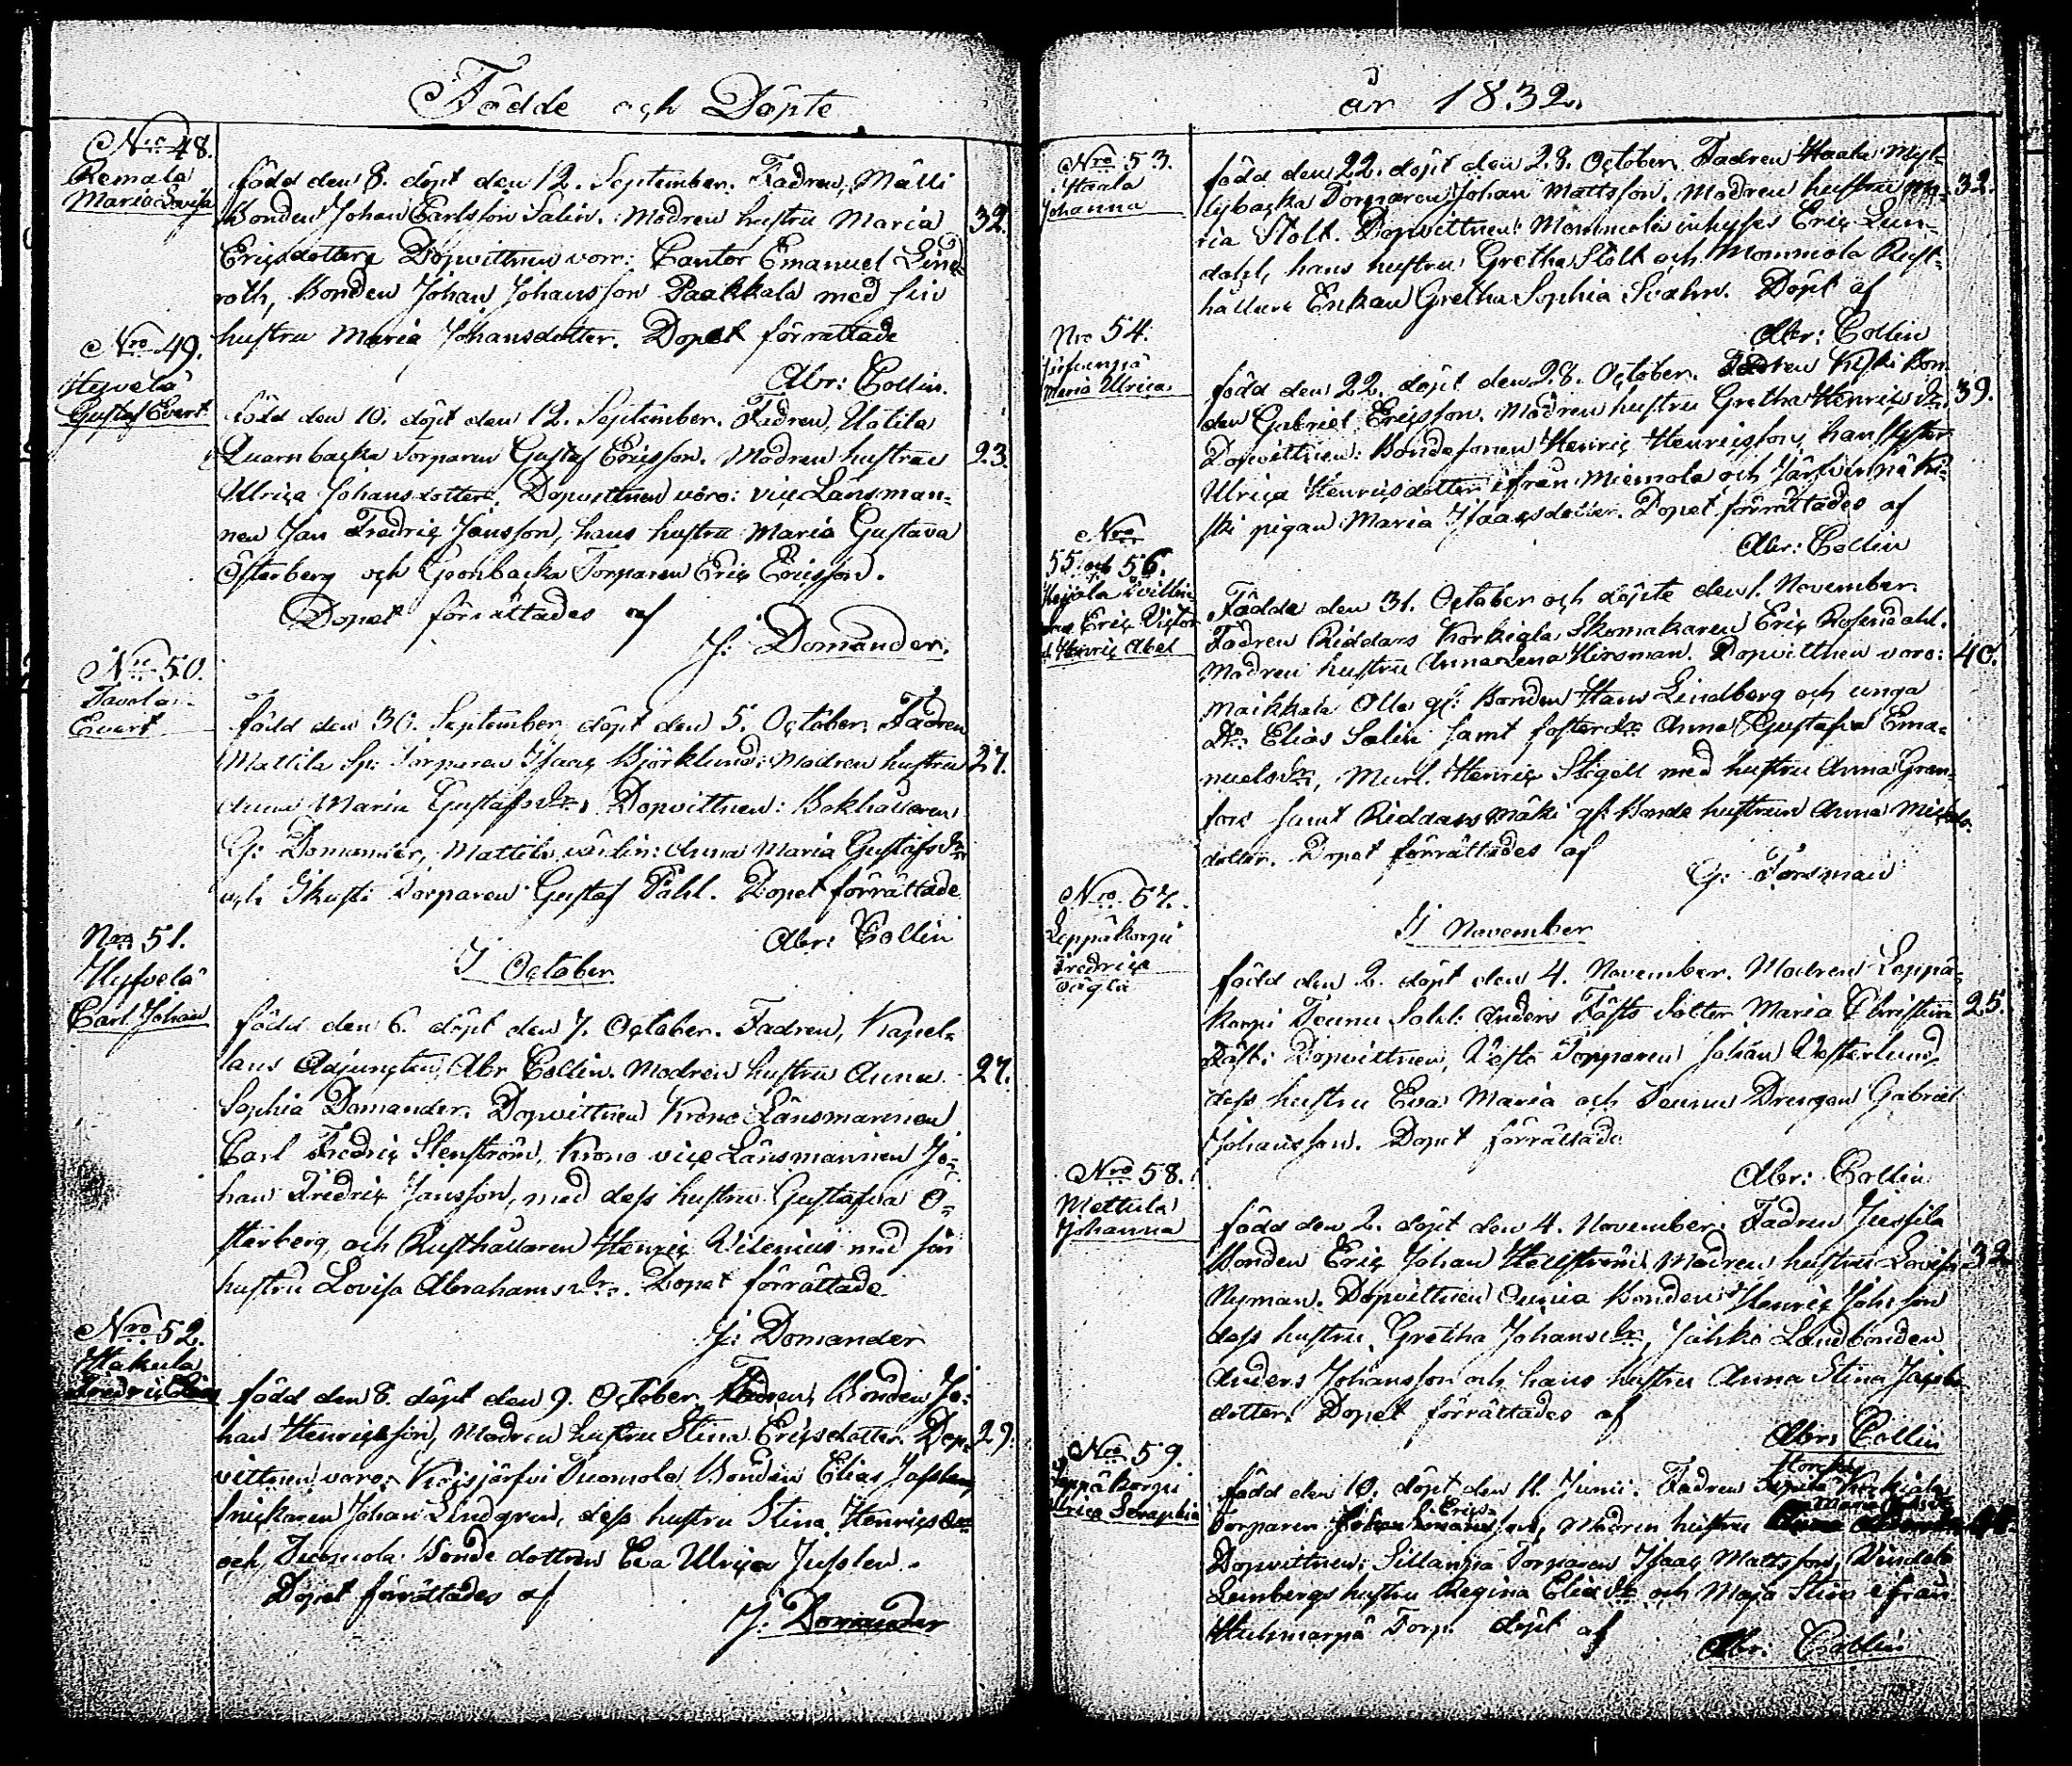 Födde och Döpte
Nro 48.
Remala
Maria Lovisa
född den 8. döpt den 12. September. Fadren, Mälli
Bonden Johan Carlsson Salin. Modren hustru Maria 32.
Ericsdotter. Dopvittnen voro: Cantor Emanuel Lind-
roth, Bonden Johan Johansson Paakkala med sin
hustru Maria Johansdotter. Dopet förrättade
Abr: Collin.
Nro 49.
Gustaf Evert
född den 10. döpt den 12. September. Fadren, Uotila
Quarnbacka Torparen Gustaf Ericsson. Modren hustru 23.
Ulrica Johansdotter. Dopvittnen voro: vice Länsman-
nen Jan Fredric Jansson, hans hustru Maria Gustava
Österberg och Torparen Eric Ericsson.
Dopet förrättades af
J: Domander.
Nro 50.
Tavola
Evert
född den 30. September, döpt den 5. October. Fadren
Mattila Sp: Torparen Isaac Björklund. Modren hustru 27.
Anna Maria Gustafsdr. Dopvittnen: Bokhållaren
G: Domander, Mattila värdin: Anna Maria Gustafsdr
och Torparen Gustaf Pahl. Dopet förrättade
Abr: Collin
I October
Nro 51.
Hyfvelä
Carl Johan
född den 6. döpt den 7. October. Fadren, Kapel-
lans Adjuncten Abr Collin. Modren hustru Anna 27.
Sophia Domander. Dopvittnen Krono Länsmannen
Carl Fredric Stenström, Krono vice Länsmannen Jo-
han Fredric Jansson, med dess hustru Gustafva Ö-
sterberg, och Rusthållaren Henric Widenius med sin
hustru Lovisa Abrahamsdr. Dopet förrättade
J: Domander
Nro 52.
Hakula
Fredric
född den 8. döpt den 9. October. Fadren, Bonden Jo-
han Henricsson, Modren hustru Stina Ericsdotter. Dop- 29.
vittnen voro: Karisjärfvi Tuomola Bonden Elias
Snickaren Johan Lindgren, dess hustru Stina Henricsdr
och Tuomola Bonde dottren Eva Ulrica
Dopet förrättades af
J: Domander
år 1832.
Nro 53.
Haala
Johanna
född den 22. döpt den 28. October. Fadren Haala Myl-
lybacka Torparen Johan Mattsson. Modren hustru Ma- 32.
ria Stolt. Dopvittnen: Mommola inhyses Eric Lun-
dahl, hans hustru Gretha Stolt och Mommola Rust-
hållare Enkan Gretha Sophia. Döpt af
Abr: Collin
Nro 54.
Maria Ulrica
född den 22. döpt den 28. October. Fadren Kiski Bon-
den Gabriel Ericsson. Modren hustru Gretha Henricsdr. 39.
Dopvittnen: Bondesonen Henric Henricsson, hans syster
Ulrica Henricsdotter ifrån Miemola och Ki-
ski pigan Maria Isaacsdotter. Dopet förrättades af
Abr: Collin
Nro
55 och 56.
Eric Victor
Henric Abel
Födde den 31. October och döpte den 1. November.
Fadren Riddars Korkiala Skomakaren Eric Rosendahl.
Modren hustru Anna Lena Hirsman. Dopvittnen voro: 40.
Maikkala Olla gs: Bonden Hans Lindberg och unga
Do: Elias Salin samt fosterdr Anna Gustafva Ema-
nuelsdr, Murl. Henric Stigell med hustru Anna Gran-
fors samt Riddars Mäki gs: Bonde hustrun Anna Michels-
dotter. Dopet förrättades af
G: Forsman
I November
Nro 57.
Leppäkorpi
Fredrica
oägta
född den 2. döpt den 4. November. Modren Leppä-
korpi Teunu Sold: Anders Täfts dotter Maria Christina 25.
Täft: Dopvittnen, Torparen Johan Vesterlund,
dess hustru Eva Maria och Teunu Drengen Gabriel
Johansson. Dopet förrättade
Abr: Collin
Nro 58.
Mettula
Johanna
född den 2. döpt den 4. November. Fadren Jussila
Bonden Eric Johan Hellström. Modren hustru Lovisa 32
Nyman. Dopvittnen Bonden Henric Johansson
dess hustru Gretha Johansdr, Landbonden
Anders Johansson och hans hustru Anna Stina Jacobs-
dotter. Dopet förrättades af
Abr: Collin
Nro 59.
Leppäkorpi
Ulrica Seraphia
född den 10. döpt den 11. Junii. Fadren Korkiala
Torparen Erics-son, Modren hustru Maria
Dopvittnen: Sillanpä Torparen Isaac Mattsson,
Lembergs hustru Regina Eliædr och Maja Stina ifrån
Torp. döpt af
Abr: Collin